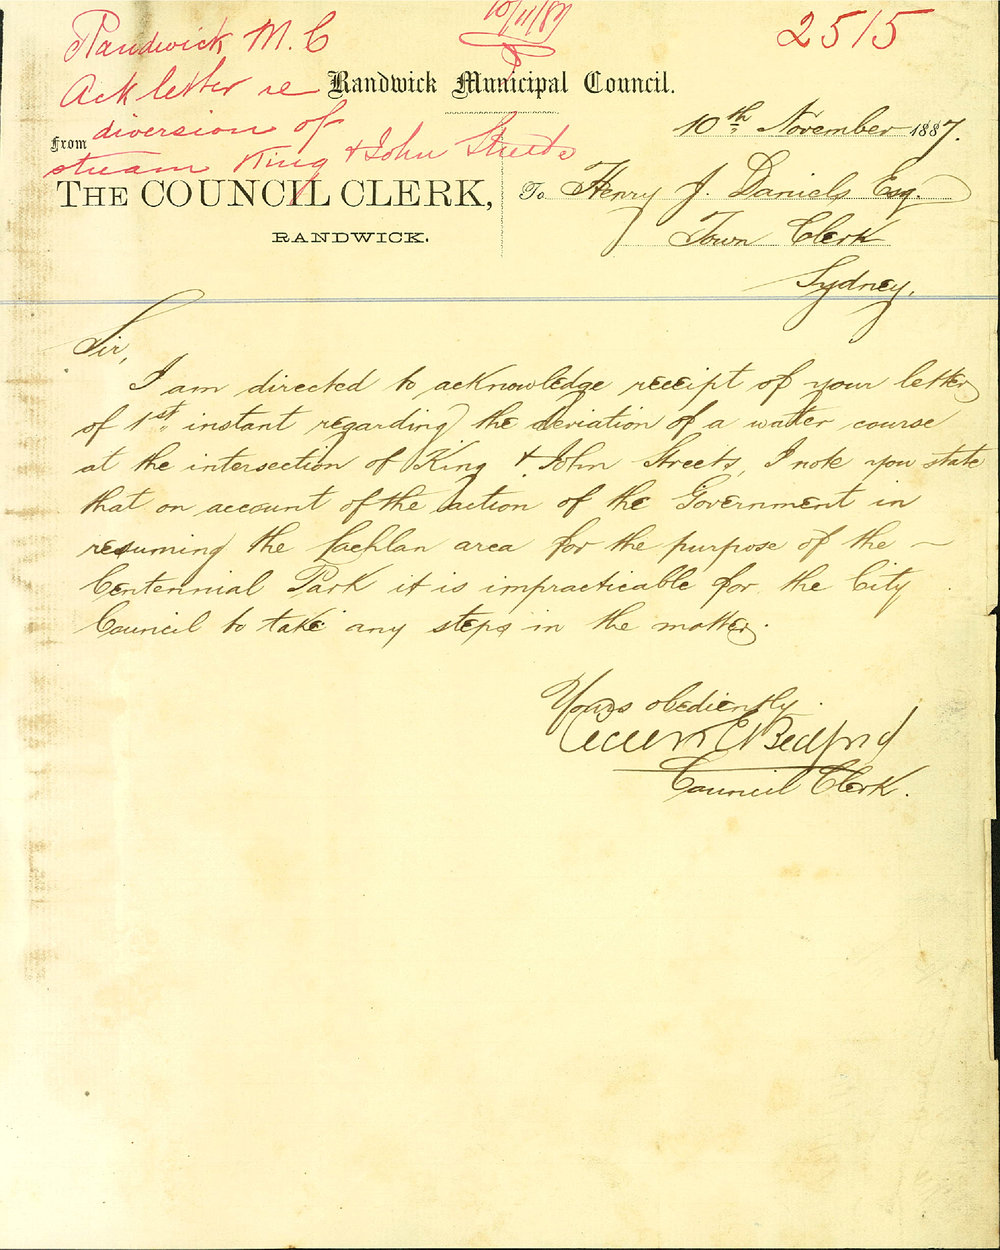 10/11/87
2515
Randwick M.C
Ack letter re
diversion of
stream King & John Streets
Randwick Municipal Council.
10th November 1887.
From
THE COUNCIL CLERK,
RANDWICK.
To Henry J. Daniels Esq.
Town Clerk
Sydney,
Sir,
I am directed to acknowledge receipt of your letter
of 1st instant regarding the deviation of a water course
at the intersection of King & John Streets, I note you state
that on account of the action of the Government in
resuming the Lachlan area for the purpose of the
Centennial Park it is impracticable for the City
Council to take any steps in the matter.
Yours obediently
E Bedford
Council Clerk.